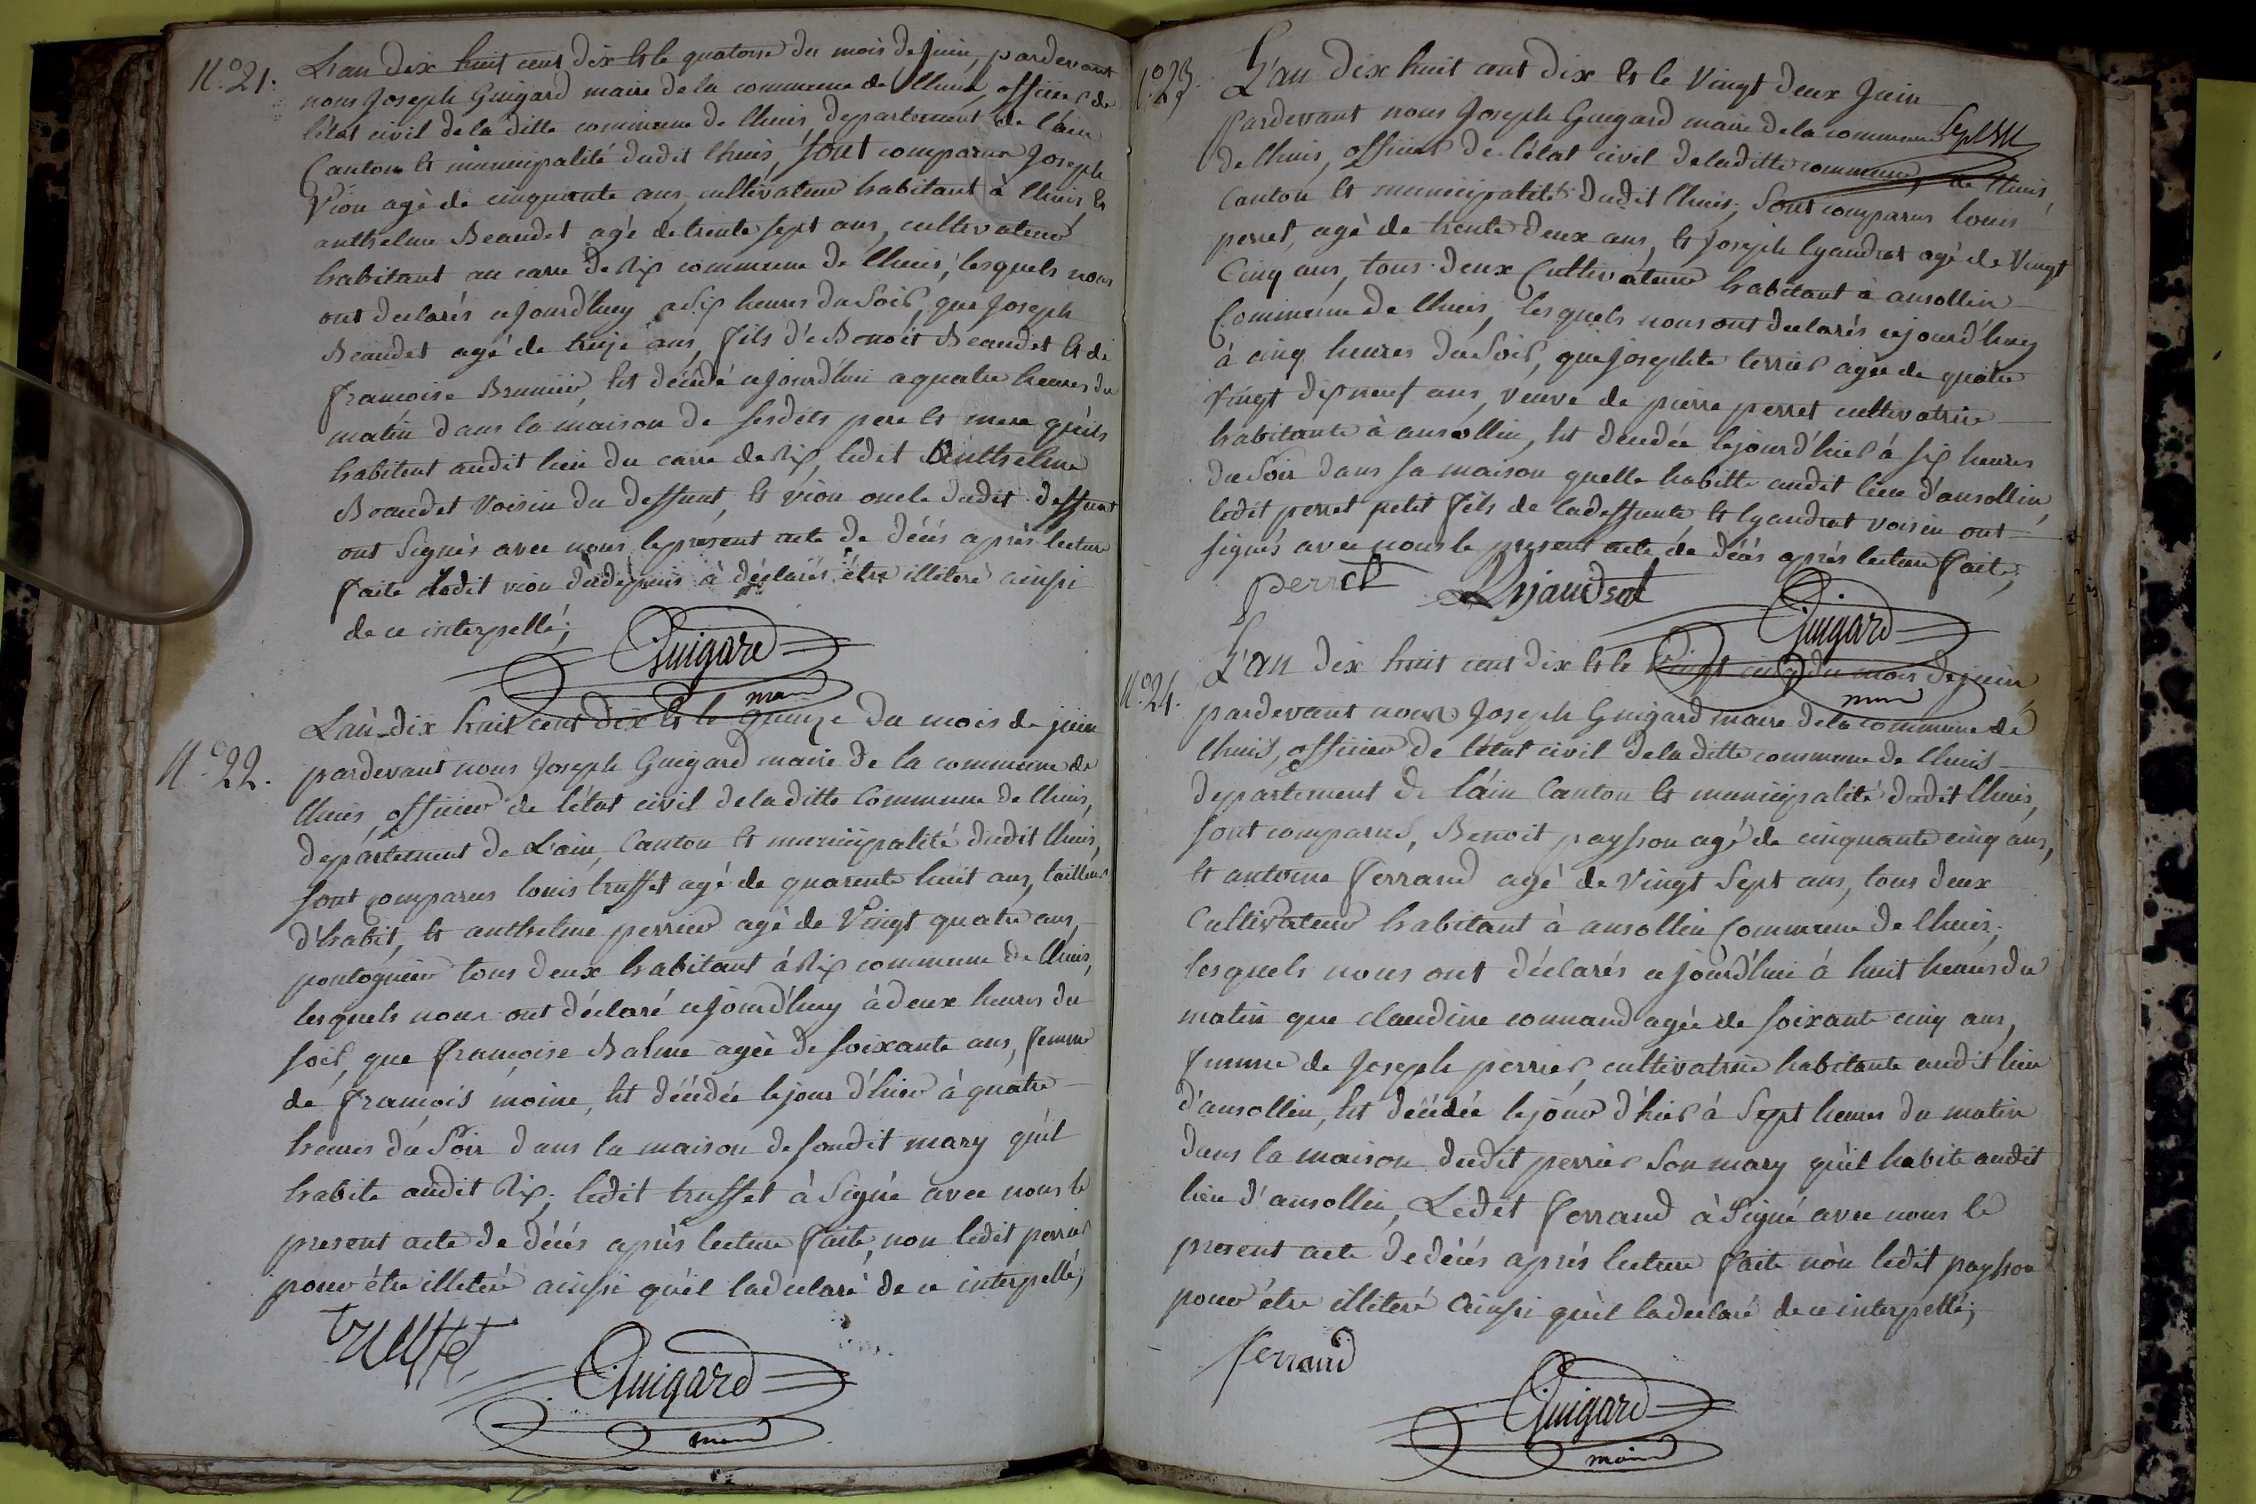 N.° 21.
L'an dix huit cent dix et le quatorze du mois de juin, pardevant
nous Joseph Guigard maire de la commune de lhuis, officier de
l'état civil de la ditte commune de lhuis departement de l'ain
Canton et municipalité dudit lhuis, sont comparus Joseph
Vion agé de cinquante ans, cultivateur habitant à lhuis, et
anthelme Beaudet agé de trente sept ans, cultivateur
habitant au carre de Rix commune de lhuis, lesquels nous
ont declarés cejourd'huy a six heures du soir, que Joseph
Beaudet agé de treize ans, fils de Benoit Beaudet et de
francoise Brunier, est décédé cejourd'hui a quatre heures du
matin dans la maison de sesdits pere et mere qu'ils
habitent audit lieu du carre de Rix, ledit Anthelme
Beaudet voisin du deffunt, et vion oncle dudit deffunt
ont signés avec nous le présent acte de décés après lecture
faite ledit vion à déclarés être illiteré ainsi
de ce interpellé;
Guigard
maire
N.° 22.
L'an dix huit cent dix et le quinze du mois de juin
pardevant nous Joseph Guigard maire de la commune de
lhuis, officier de l'état civil de la ditte Commune de lhuis,
departement de L'ain, Canton et municipalité dudit lhuis,
sont comparus louis truffet agé de quarente huit ans, tailleur
d'habit, et anthelme perrier agé de Vingt quatre ans,
tous deux habitant à Rix commune de lhuis,
lesquels nous ont déclaré cejourd'huy à deux heures du
soir, que francoise Balme agée de soixante ans, femme
de francois moine, est décédée le jour d'hier à quatre
heures du Soir dans la maison de sondit mary qu'il
habite audit Rix; ledit truffet à Signé avec nous le
present acte de décés après lecture faite, non ledit perrier
pour être illiteré ainsi qu'il la declaré de ce interpellé;
truffet
Guigard
maire
N.° 23
L'an dix huit cent dix et le Vingt deux Juin
pardevant nous Joseph Guigard maire de la commune
de lhuis, officier de l'état civil de la ditte commune, de lhuis,
Canton et municipalité dudit lhuis, Sont comparus louis
perret, agé de trente deux ans, et Joseph lyaudrat agé de Vingt
Cinq ans, tous deux Cultivateur habitant à ansollin
Commune de lhuis, lesquels nous ont declarés cejourd'huy
à cinq heures du Soir, que josephte terrier agée de quatre
Vingt dix neuf ans, veuve de pierre perret cultivatrice
habitante à ansollin, est décédée le jour d'hier à six heures
du Soir dans sa maison quelle habitte audit lieu d'ansollin,
ledit perret petit fils de la deffunte, et lyaudrat voisin ont
signés avec nous le present acte de décés après lecture faite;
perret
Guigard
maire
N.° 24.
L'an dix huit cent dix et le Vingt cinq du mois de juin
pardevant nous Joseph Guigard maire de la commune de
lhuis, officier de l'état civil de la ditte commune de lhuis
departement de l'ain Canton et municipalité dudit lhuis,
sont comparus, Benoit paysson agé de cinquante cinq ans,
et antoine ferrand agé de Vingt Sept ans, tous deux
Cultivateur habitant à ansollin Commune de lhuis,
lesquels nous ont déclarés cejourd'hui à huit heures du
matin que claudine connand agée de soixante cinq ans,
femme de Joseph perrier, cultivatrice habitante audit lieu
d'ansollin, est décédée le jour d'hier à Sept heures du matin
dans la maison dudit perrier son mary qu'il habite audit
lieu d'ansollin, Ledit ferrand à Signé avec nous le
present acte de décés après lecture faite non ledit paysson
pour être illiteré Ainsi qu'il la declaré de ce interpellé;
ferrand
Guigard
maire